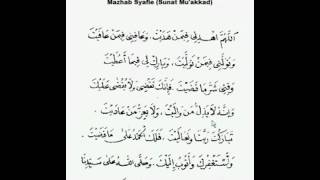 Mazhab Syafie (Sunat Mu'akkad)
اَللّٰهُمَّ اهْدِنِيْ فِيْمَنْ هَدَيْتَ، وَعَافِنِيْ فِيْمَنْ عَافَيْتَ
وَتَوَلَّنِيْ فِيْمَنْ تَوَلَّيْتَ، وَبَارِكْ لِيْ فِيْمَا أَعْطَيْتَ
وَقِنِيْ شَرَّ مَا قَضَيْتَ، فَإِنَّكَ تَقْضِيْ وَلَا يُقْضٰى عَلَيْكَ
وَإِنَّهُ لَا يَذِلُّ مَنْ وَالَيْتَ، وَلَا يَعِزُّ مَنْ عَادَيْتَ
تَبَارَكْتَ رَبَّنَا وَتَعَالَيْتَ، فَلَكَ الْحَمْدُ عَلٰى مَا قَضَيْتَ
وَأَسْتَغْفِرُكَ وَأَتُوْبُ إِلَيْكَ، وَصَلَّى اللّٰهُ عَلٰى سَيِّدِنَا